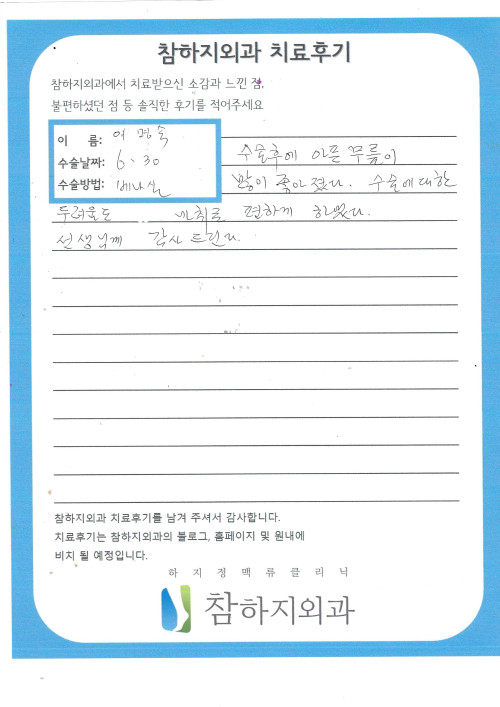 참하지외과 치료후기
참하지외과에서 치료받으신 소감과 느낀 점,
불편하셨던 점 등 솔직한 후기를 적어주세요
이 름: 여명숙
수술날짜: 6-30
수술방법: 베나실
수술후에 아픈 무릎이
많이 좋아졌다. 수술에 대한
두려움도 마취로 편하게 하였다.
선생님께 감사드린다.
참하지외과 치료후기를 남겨 주셔서 감사합니다.
치료후기는 참하지외과의 블로그, 홈페이지 및 원내에
비치 될 예정입니다.
하지정맥류클리닉
참하지외과